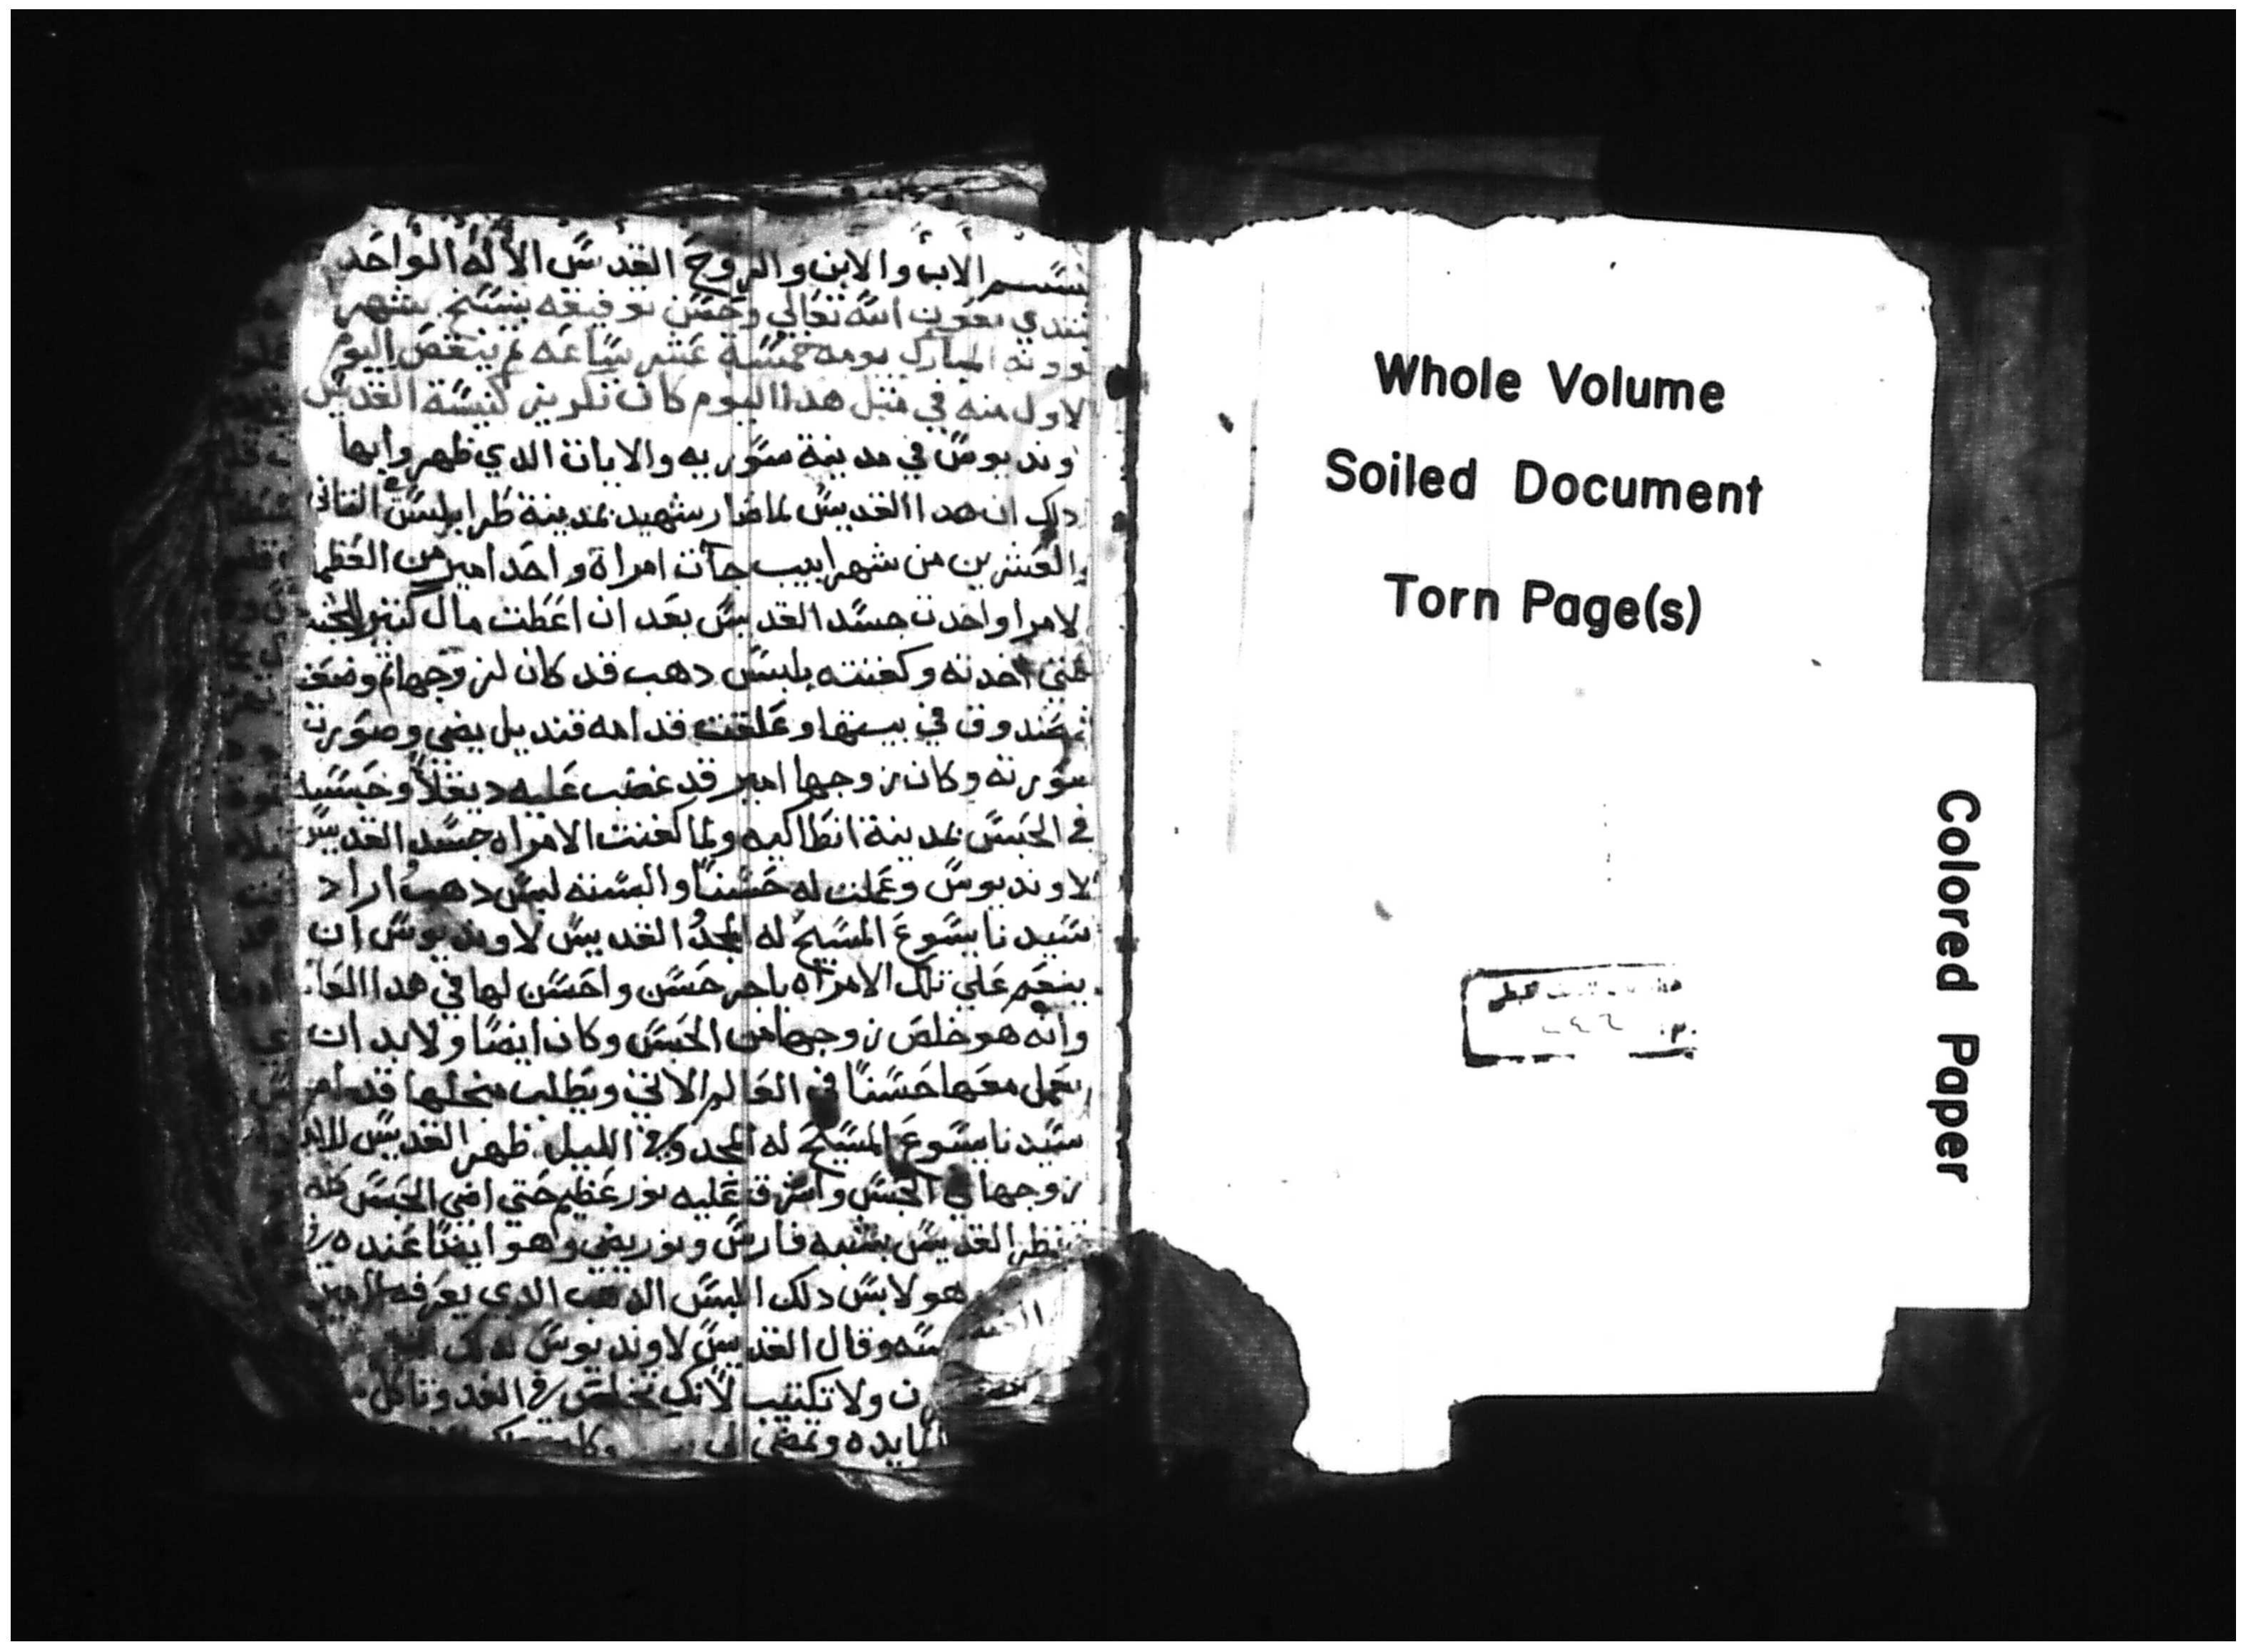 بسم الاب والابن والروح القدس الاله الواحد
نبتدي بعون الله تعالي وحسن توفيقه بنسخ شهر
بوونه المبارك يومه خمسة عشر ساعه لم ينقص اليوم
لاول منه في مثل هدا اليوم كان تكريز كنيسة القديس
وند يوس في مدينة سوريه والايات الدي ظهروا بها
دلك ان هدا القديس لما صار شهيد بمدينة طرابلس الثاني
والعشرين من شهر ابيب جات امراة واحد امير من العظما
لامرا واخدت جسد القديس بعد ان اعطت مال كتير للجند
حتي اخدته وكفنته بلبس دهب قد كان لزوجها تم وضعته
صندوق في بيتها وعلقت قدامه قنديل يضي وصورت
صورته وكان زوجها امير قد غضب عليه ديقلا وحبسه
في الحبس بمدينة انطاكيه ولما كفنت الامراه جسد القديس
لاونديوس وعملت له حسناً والبسته لبس دهب اراد
سيدنا يسوع المسيح له المجد القديس لاونديوس ان
ينعم علي تلك الامراه باجر حسن واحسن لها في هدا العا
وانه هو خلص زوجها من الحبس وكان ايضا ولابد ان
يعمل معها حسناً في العالم الاتي ويطلب من اجلها قدام
سيدنا يسوع المسيح له المجد وفي الليل ظهر القديس
زوجها في الحبس واشرق عليه نور عظيم حتي اضي الحبس كله
ونظر القديس بشبه فارس ونور يضي وهو ايضا عنده
هو لابس دلك البس الدهب الدي يعرفه الامير
وقال القديس لاونديوس له
ن ولا تكتيب لانك تخلص في الغد وتاكل
المايده وتمضي الي
Whole Volume
Soiled Document
Torn Page(s)
Colored Paper